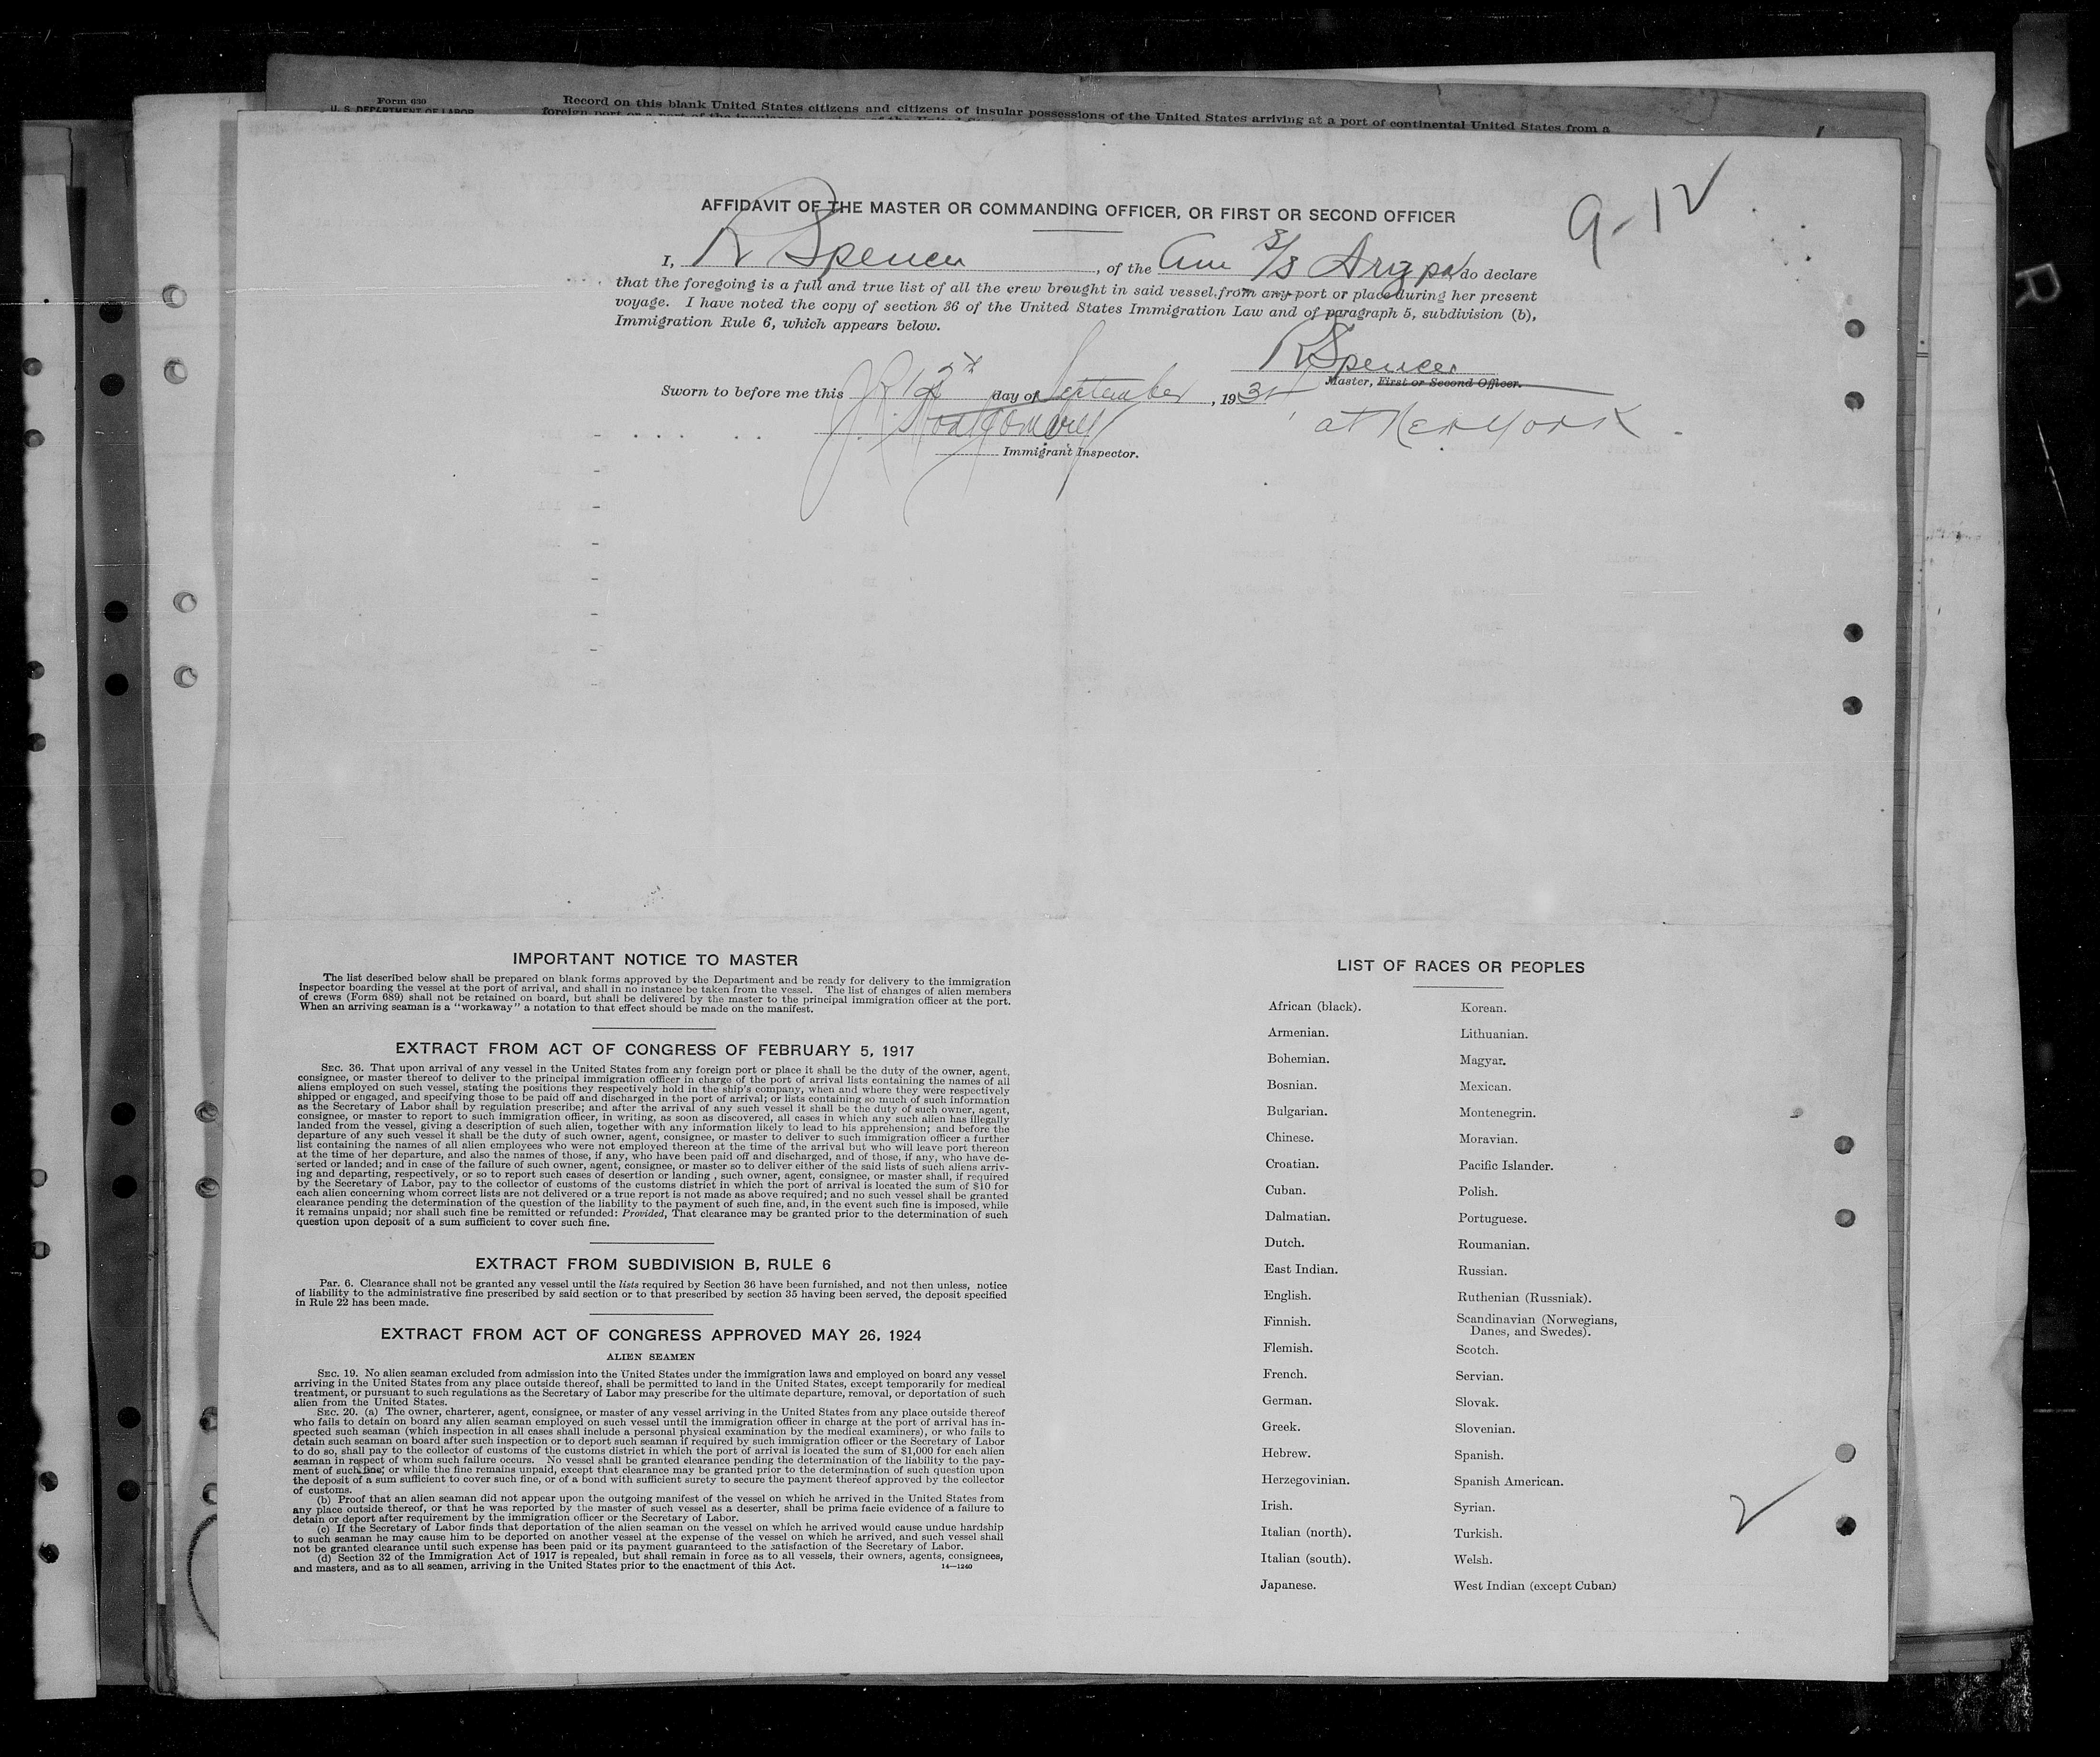 Form 630
U. S. DEPARTMENT OF LABOR
Record on this blank United States citizens and citizens of insular possessions of the United States arriving at a port of continental United States from a
9-12
AFFIDAVIT OF THE MASTER OR COMMANDING OFFICER, OR FIRST OR SECOND OFFICER
I, R Spencer, of the Am S/S do declare
that the foregoing is a full and true list of all the crew brought in said vessel from any port or place during her present
voyage. I have noted the copy of section 36 of the United States Immigration Law and of paragraph 5, subdivision (b),
Immigration Rule 6, which appears below.
R Spencer
Master, First or Second Officer.
Sworn to before me this 12 day of September, 1931
at New York
J. R. Montgomery
Immigrant Inspector.
IMPORTANT NOTICE TO MASTER
The list described below shall be prepared on blank forms approved by the Department and be ready for delivery to the immigration
inspector boarding the vessel at the port of arrival, and shall in no instance be taken from the vessel. The list of changes of alien members
of crews (Form 689) shall not be retained on board, but shall be delivered by the master to the principal immigration officer at the port.
When an arriving seaman is a "workaway" a notation to that effect should be made on the manifest.
EXTRACT FROM ACT OF CONGRESS OF FEBRUARY 5, 1917
SEC. 36. That upon arrival of any vessel in the United States from any foreign port or place it shall be the duty of the owner, agent,
consignee, or master thereof to deliver to the principal immigration officer in charge of the port of arrival lists containing the names of all
aliens employed on such vessel, stating the positions they respectively hold in the ship's company, when and where they were respectively
shipped or engaged, and specifying those to be paid off and discharged in the port of arrival; or lists containing so much of such information
as the Secretary of Labor shall by regulation prescribe; and after the arrival of any such vessel it shall be the duty of such owner, agent,
consignee, or master to report to such immigration officer, in writing, as soon as discovered, all cases in which any such alien has illegally
landed from the vessel, giving a description of such alien, together with any information likely to lead to his apprehension; and before the
departure of any such vessel it shall be the duty of such owner, agent, consignee, or master to deliver to such immigration officer a further
list containing the names of all alien employees who were not employed thereon at the time of the arrival but who will leave port thereon
at the time of her departure, and also the names of those, if any, who have been paid off and discharged, and of those, if any, who have de-
serted or landed; and in case of the failure of such owner, agent, consignee, or master so to deliver either of the said lists of such aliens arriv-
ing and departing, respectively, or so to report such cases of desertion or landing , such owner, agent, consignee, or master shall, if required
by the Secretary of Labor, pay to the collector of customs of the customs district in which the port of arrival is located the sum of $10 for
each alien concerning whom correct lists are not delivered or a true report is not made as above required; and no such vessel shall be granted
clearance pending the determination of the question of the liability to the payment of such fine, and, in the event such fine is imposed, while
it remains unpaid; nor shall such fine be remitted or refunded: Provided, That clearance may be granted prior to the determination of such
question upon deposit of a sum sufficient to cover such fine.
EXTRACT FROM SUBDIVISION B, RULE 6
Par. 6. Clearance shall not be granted any vessel until the lists required by Section 36 have been furnished, and not then unless, notice
of liability to the administrative fine prescribed by said section or to that prescribed by section 35 having been served, the deposit specified
in Rule 22 has been made.
EXTRACT FROM ACT OF CONGRESS APPROVED MAY 26, 1924
ALIEN SEAMEN
SEC. 19. No alien seaman excluded from admission into the United States under the immigration laws and employed on board any vessel
arriving in the United States from any place outside thereof, shall be permitted to land in the United States, except temporarily for medical
treatment, or pursuant to such regulations as the Secretary of Labor may prescribe for the ultimate departure, removal, or deportation of such
alien from the United States.
SEC. 20. (a) The owner, charterer, agent, consignee, or master of any vessel arriving in the United States from any place outside thereof
who fails to detain on board any alien seaman employed on such vessel until the immigration officer in charge at the port of arrival has in-
spected such seaman (which inspection in all cases shall include a personal physical examination by the medical examiners), or who fails to
detain such seaman on board after such inspection or to deport such seaman if required by such immigration officer or the Secretary of Labor
to do so, shall pay to the collector of customs of the customs district in which the port of arrival is located the sum of $1,000 for each alien
seaman in respect of whom such failure occurs. No vessel shall be granted clearance pending the determination of the liability to the pay-
ment of such fine, or while the fine remains unpaid, except that clearance may be granted prior to the determination of such question upon
the deposit of a sum sufficient to cover such fine, or of a bond with sufficient surety to secure the payment thereof approved by the collector
of customs.
(b) Proof that an alien seaman did not appear upon the outgoing manifest of the vessel on which he arrived in the United States from
any place outside thereof, or that he was reported by the master of such vessel as a deserter, shall be prima facie evidence of a failure to
detain or deport after requirement by the immigration officer or the Secretary of Labor.
(c) If the Secretary of Labor finds that deportation of the alien seaman on the vessel on which he arrived would cause undue hardship
to such seaman he may cause him to be deported on another vessel at the expense of the vessel on which he arrived, and such vessel shall
not be granted clearance until such expense has been paid or its payment guaranteed to the satisfaction of the Secretary of Labor.
(d) Section 32 of the Immigration Act of 1917 is repealed, but shall remain in force as to all vessels, their owners, agents, consignees,
and masters, and as to all seamen, arriving in the United States prior to the enactment of this Act.
14—1240
LIST OF RACES OR PEOPLES
African (black).
Armenian.
Bohemian.
Bosnian.
Bulgarian.
Chinese.
Croatian.
Cuban.
Dalmatian.
Dutch.
East Indian.
English.
Finnish.
Flemish.
French.
German.
Greek.
Hebrew.
Herzegovinian.
Irish.
Italian (north).
Italian (south).
Japanese.
Korean.
Lithuanian.
Magyar.
Mexican.
Montenegrin.
Moravian.
Pacific Islander.
Polish.
Portuguese.
Roumanian.
Russian.
Ruthenian (Russniak).
Scandinavian (Norwegians,
Danes, and Swedes).
Scotch.
Servian.
Slovak.
Slovenian.
Spanish.
Spanish American.
Syrian.
Turkish.
Welsh.
West Indian (except Cuban)
2
R